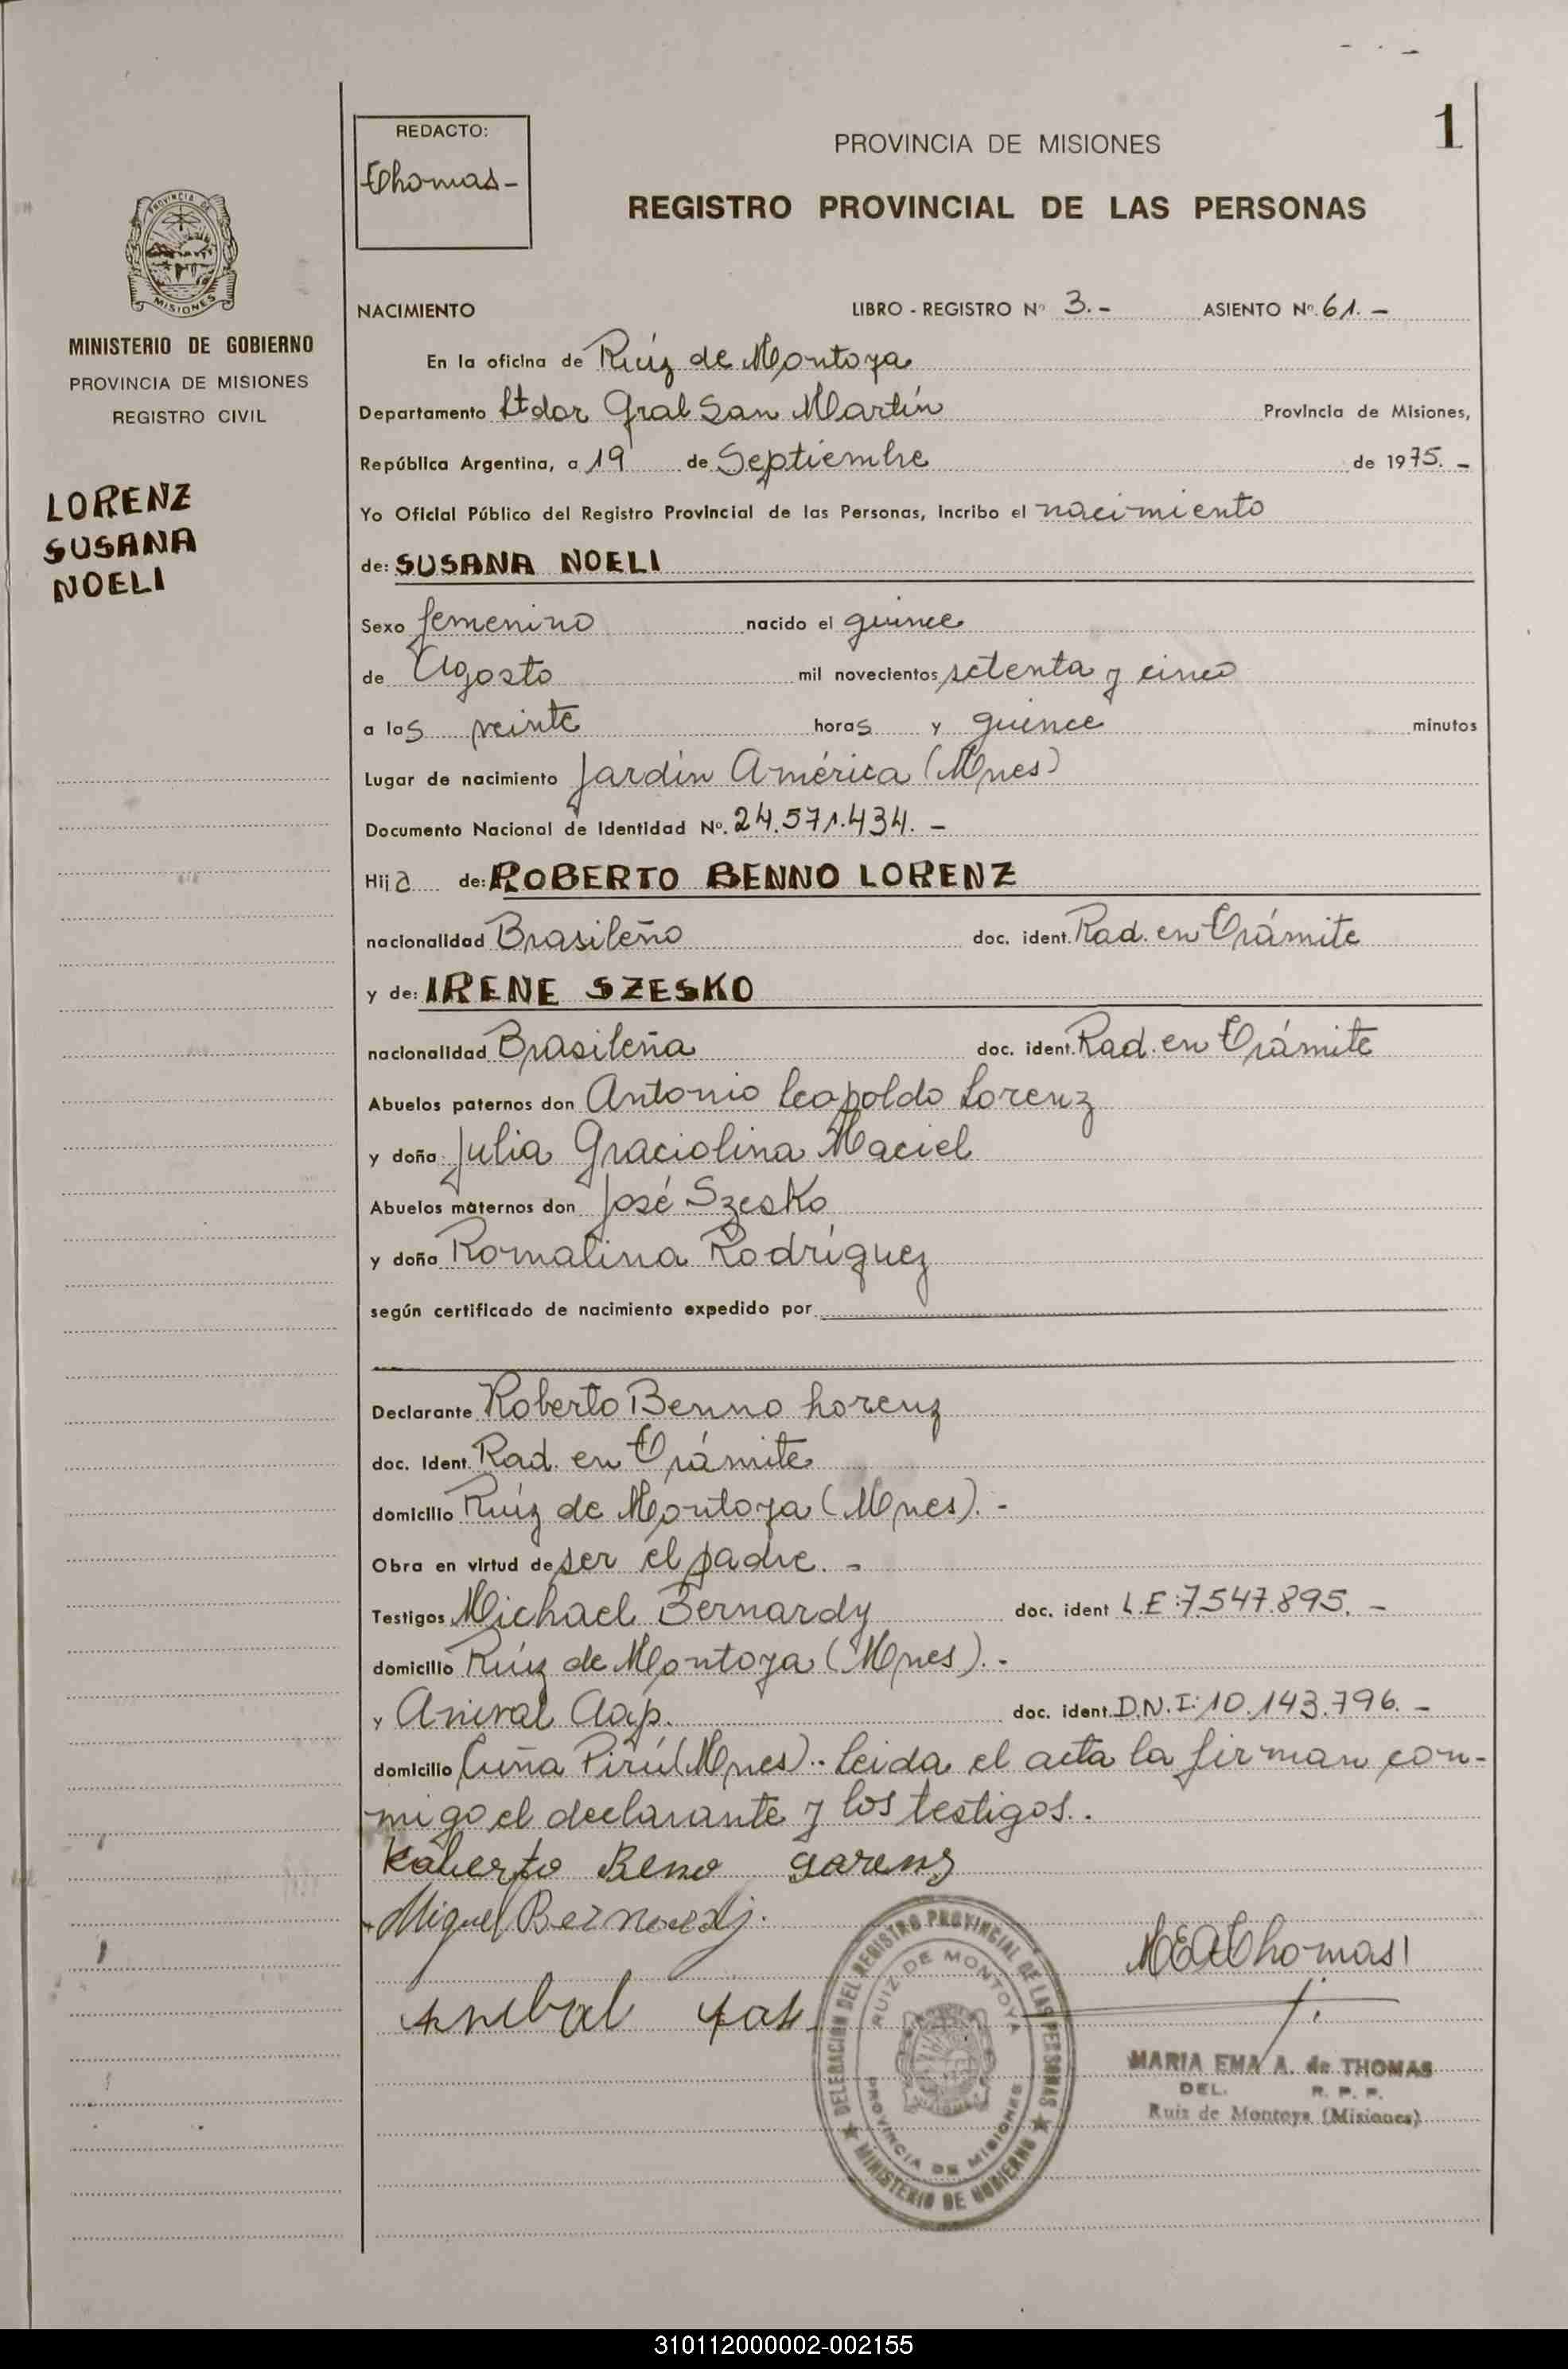 1
REDACTO:
Thomas-
PROVINCIA DE MISIONES
REGISTRO PROVINCIAL DE LAS PERSONAS
PROVINCIA DE
MISIONES
MINISTERIO DE GOBIERNO
PROVINCIA DE MISIONES
REGISTRO CIVIL
LORENZ
SUSANA
NOELI
NACIMIENTO LIBRO - REGISTRO Nº 3.- ASIENTO Nº. 61. -
En la oficina de Ruíz de Montoya
Departamento Ltdor Gral San Martín Provincia de Misiones,
República Argentina, a 19 de Septiembre de 1975. -
Yo Oficial Público del Registro Provincial de las Personas, incribo el nacimiento
de: SUSANA NOELI
Sexo femenino nacido el quince
de Agosto mil novecientos setenta y cinco
a las veinte horas y quince minutos
Lugar de nacimiento Jardín América (Mnes)
Documento Nacional de Identidad Nº. 24.571.434. -
Hija de: ROBERTO BENNO LORENZ
nacionalidad Brasileño doc. ident. Rad. en Trámite
y de: IRENE SZESKO
nacionalidad Brasileña doc. ident. Rad. en Trámite
Abuelos paternos don Antonio Leopoldo Lorenz
y doña Julia Graciolina Maciel
Abuelos maternos don José Szesko
y doña Romalina Rodríguez
según certificado de nacimiento expedido por
Declarante Roberto Benno Lorenz
doc. Ident. Rad. en Trámite
domicilio Ruíz de Montoya (Mnes). -
Obra en virtud de ser el padre. -
Testigos Michael Bernardy doc. ident L.E:7.547.895. -
domicilio Ruíz de Montoya (Mnes). -
y Anival Aap. doc. ident. D.N.I:10.143.796. -
domicilio Cuña Pirú (Mnes).. Leida el acta la firman con-
migo el declarante y los testigos..
Roberto Beno Lorenz
Miguel Bernardy.
Anibal
MEAThomas
DELEGACION DEL REGISTRO PROVINCIAL DE LAS PERSONAS
RUIZ DE MONTOYA
PROVINCIA DE MISIONES
MINISTERIO DE GOBIERNO
MARIA EMA A. de THOMAS
DEL. R. P. P.
Ruiz de Montoya (Misiones)
310112000002-002155